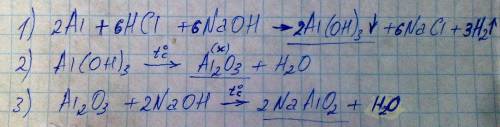 1) 2Al + 6HCl + 6NaOH → 2Al(OH)₃↓ + 6NaCl + 3H₂↑
2) Al(OH)₃ t°C→ Al₂O₃ (x) + H₂O
3) Al₂O₃ + 2NaOH t°C→ 2NaAlO₂ + H₂O